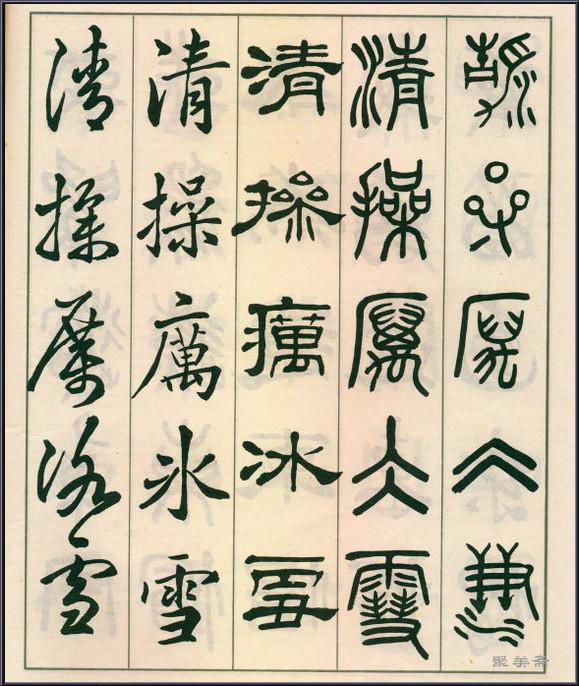 清操厲冰雪
清操厲冰雪
清操厲冰雪
清操厲冰雪
清操厲冰雪
聚美斋